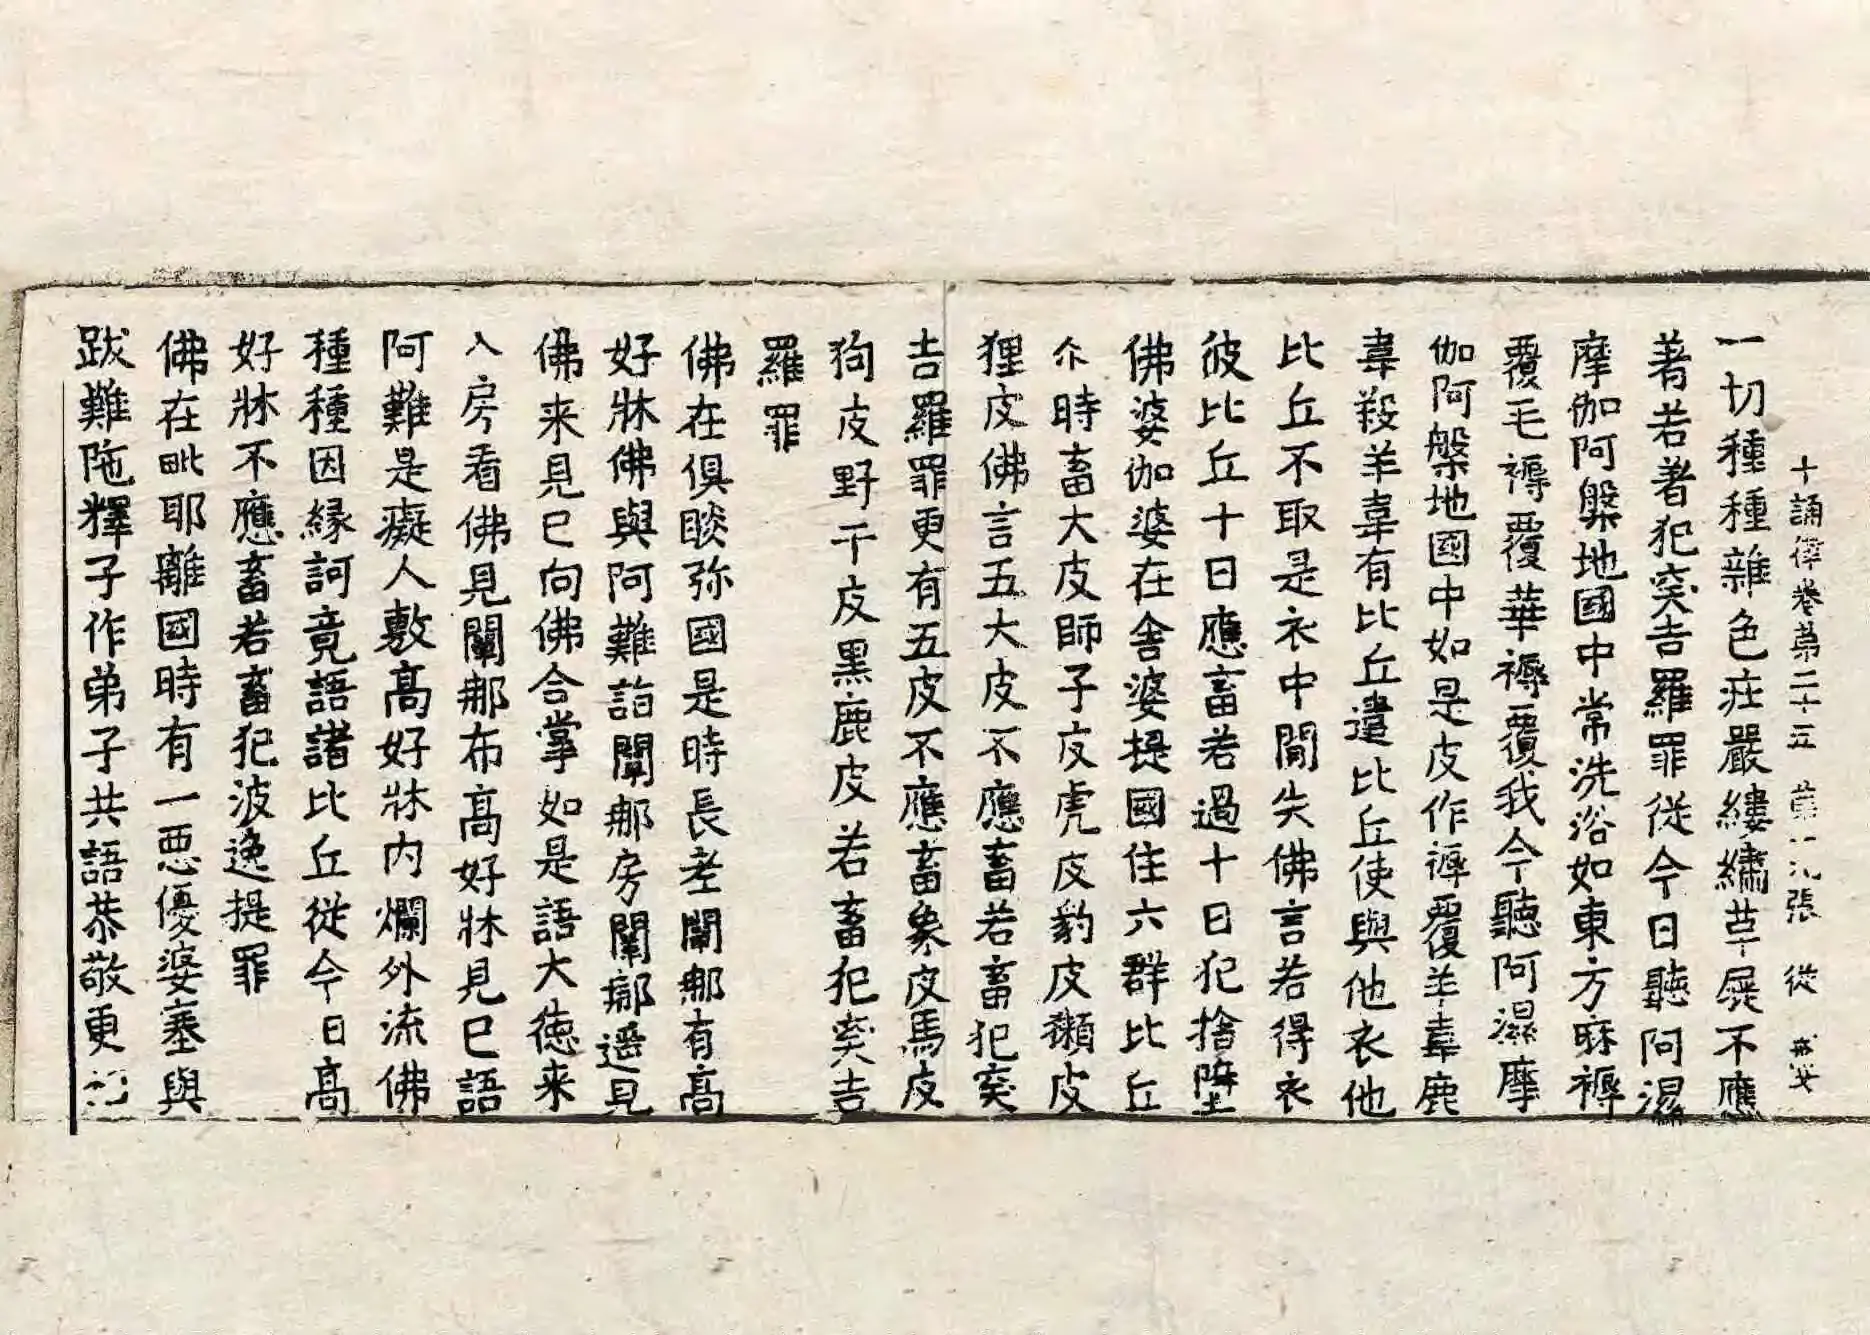 十誦律卷第二十五　第　張　從
一切種種雜色疰嚴縷繡草屐不應
著若著犯突吉羅罪從今日聽阿濕
摩伽阿槃地國中常洗浴如東方麻褥
覆毛褥覆華褥覆我今聽阿濕摩
伽阿槃地國中如是皮作褥覆羊韋鹿
韋羖羊韋有比丘遣比丘使與他衣他
比丘不取是衣中閒失佛言若得衣
彼比丘十日應畜若過十日犯捨墮
佛婆伽婆在舍婆提國住六群比丘
尒時畜大皮師子皮虎皮豹皮獺皮
狸皮佛言五大皮不應畜若畜犯突
吉羅罪更有五皮不應畜象皮馬皮
狗皮野干皮黑鹿皮若畜犯突吉
羅罪
佛在俱睒弥國是時長老闡那有高
好牀佛與阿難詣闡那房闡那遥見
佛来見已向佛合掌如是語大德来
入房看佛見闡那布高好牀見已語
阿難是癡人敷高好牀内爛外流佛
種種因緣訶竟語諸比丘從今日高
好牀不應畜若畜犯波逸提罪
佛在毗耶離國時有一惡優婆塞與
跋難陁釋子作弟子共語恭敬更